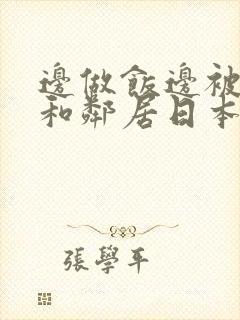 邊做飯邊被
和鄰居日本
張學平